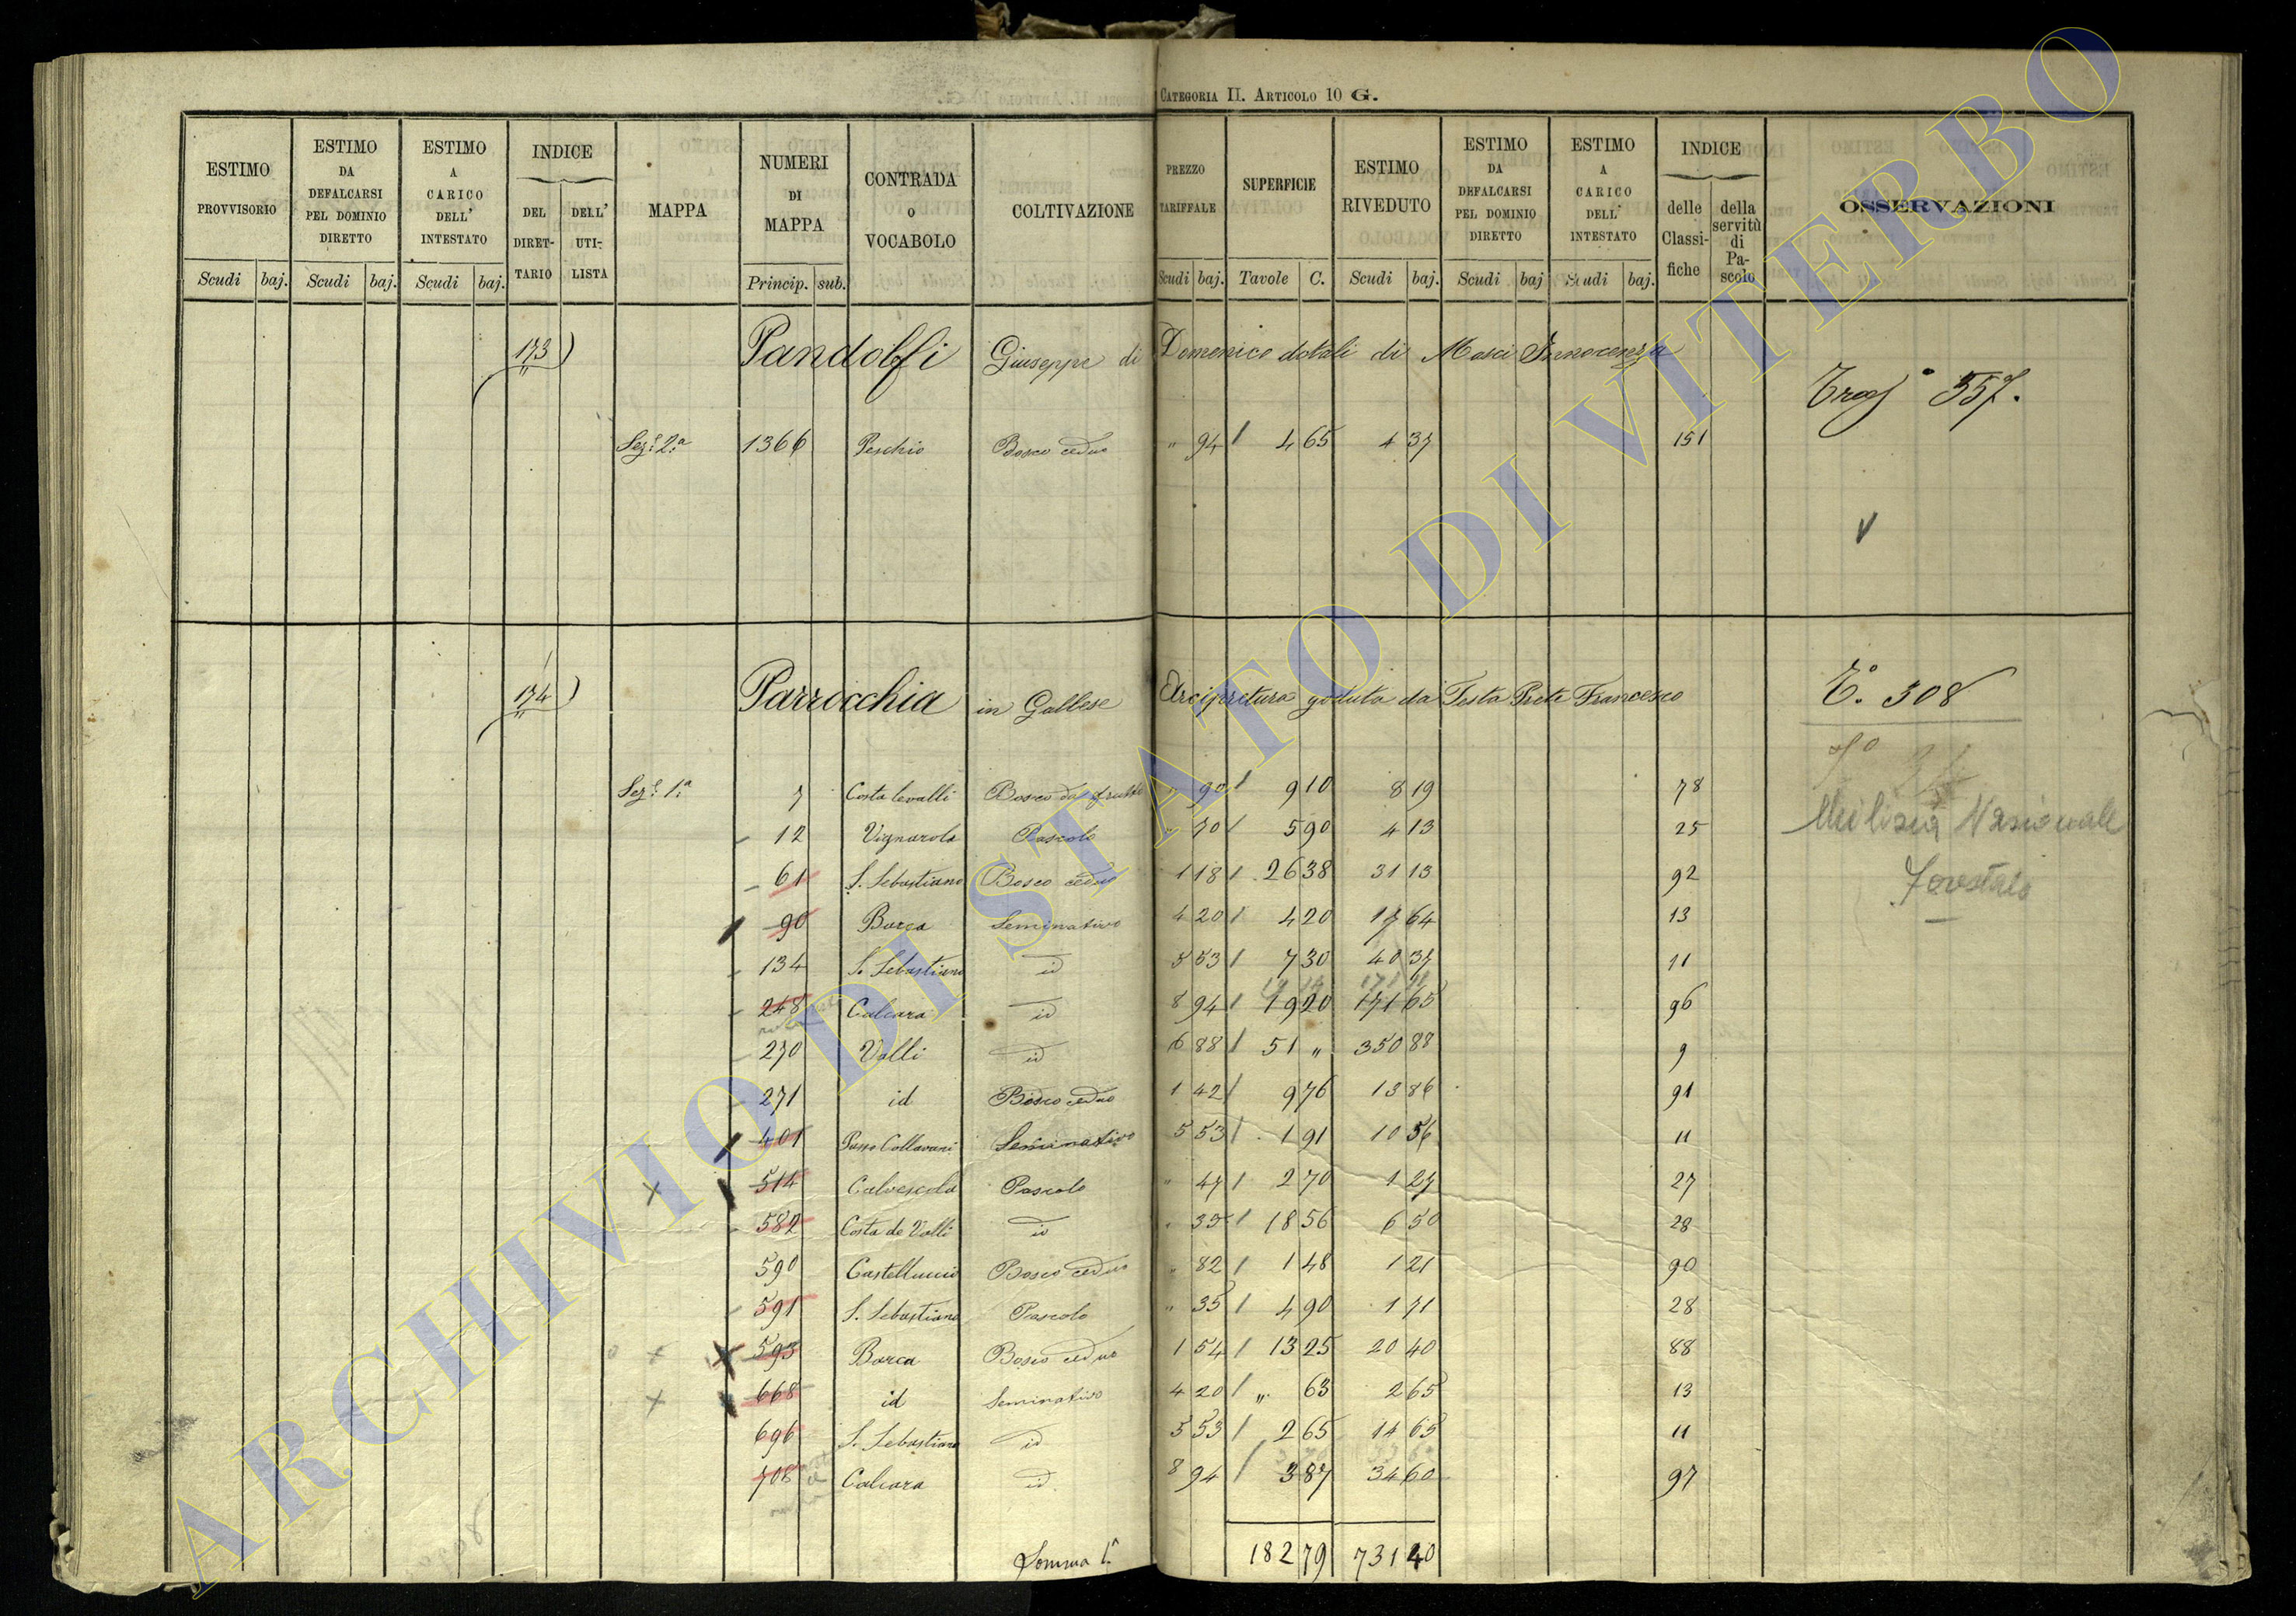 CATEGORIA II. ARTICOLO 10 G.
ESTIMO PROVVISORIO Scudi baj.
ESTIMO DA DEFALCARSI PEL DOMINIO DIRETTO Scudi baj.
ESTIMO A CARICO DELL' INTESTATO Scudi baj.
INDICE DEL DIRET-TARIO DELL' UTI-LISTA
MAPPA
NUMERI DI MAPPA Princip. sub.
CONTRADA O VOCABOLO
COLTIVAZIONE
PREZZO TARIFFALE Scudi baj.
SUPERFICIE Tavole C.
ESTIMO RIVEDUTO Scudi baj.
ESTIMO DA DEFALCARSI PEL DOMINIO DIRETTO Scudi baj
ESTIMO A CARICO DELL' INTESTATO Scudi baj.
INDICE delle Classi-fiche della servitù di Pa-scolo
OSSERVAZIONI
173) Pandolfi Giuseppe di Domenico dotali di Masci Innocenza
557.
Sez.e 2.a 1366 Peschio Bosco ceduo " 94 4 65 4 37 151
V
174) Parrocchia in Gallese Arcipretura goduta da Testa Prete Francesco T.o 308
Sez.e 1.a 7 Costa levalli Bosco da frutto " 90 9 10 8 19 78
12 Vignarola Pascolo " 70 5 90 4 13 25
Milizia Nazionale
Forestale
61 S. Sebastiano Bosco ceduo 1 18 26 38 31 13 92
90 Barca Seminativo 4 20 4 20 17 64 13
134 S. Sebastiano id 5 53 7 30 40 37 11
248 Calcara id 8 94 19 20 171 65 96
270 Valli id 6 88 51 " 350 88 9
271 id Bosco ceduo 1 42 9 76 13 86 91
401 Passo Collavani Seminativo 5 53 1 91 10 56 11
514 Calvescola Pascolo " 47 2 70 1 27 27
582 Costa de Valli id " 35 18 56 6 50 28
590 Castelluccio Bosco ceduo " 82 1 48 1 21 90
591 S. Sebastiano Pascolo " 35 4 90 1 71 28
593 Barca Bosco ceduo 1 54 13 25 20 40 88
668 id Seminativo 4 20 " 63 2 65 13
696 S. Sebastiano id 5 53 2 65 14 65 11
708 Calcara id 8 94 3 87 34 60 97
Somma 1.a 182 79 731 40
ARCHIVIO DI STATO DI VITERBO